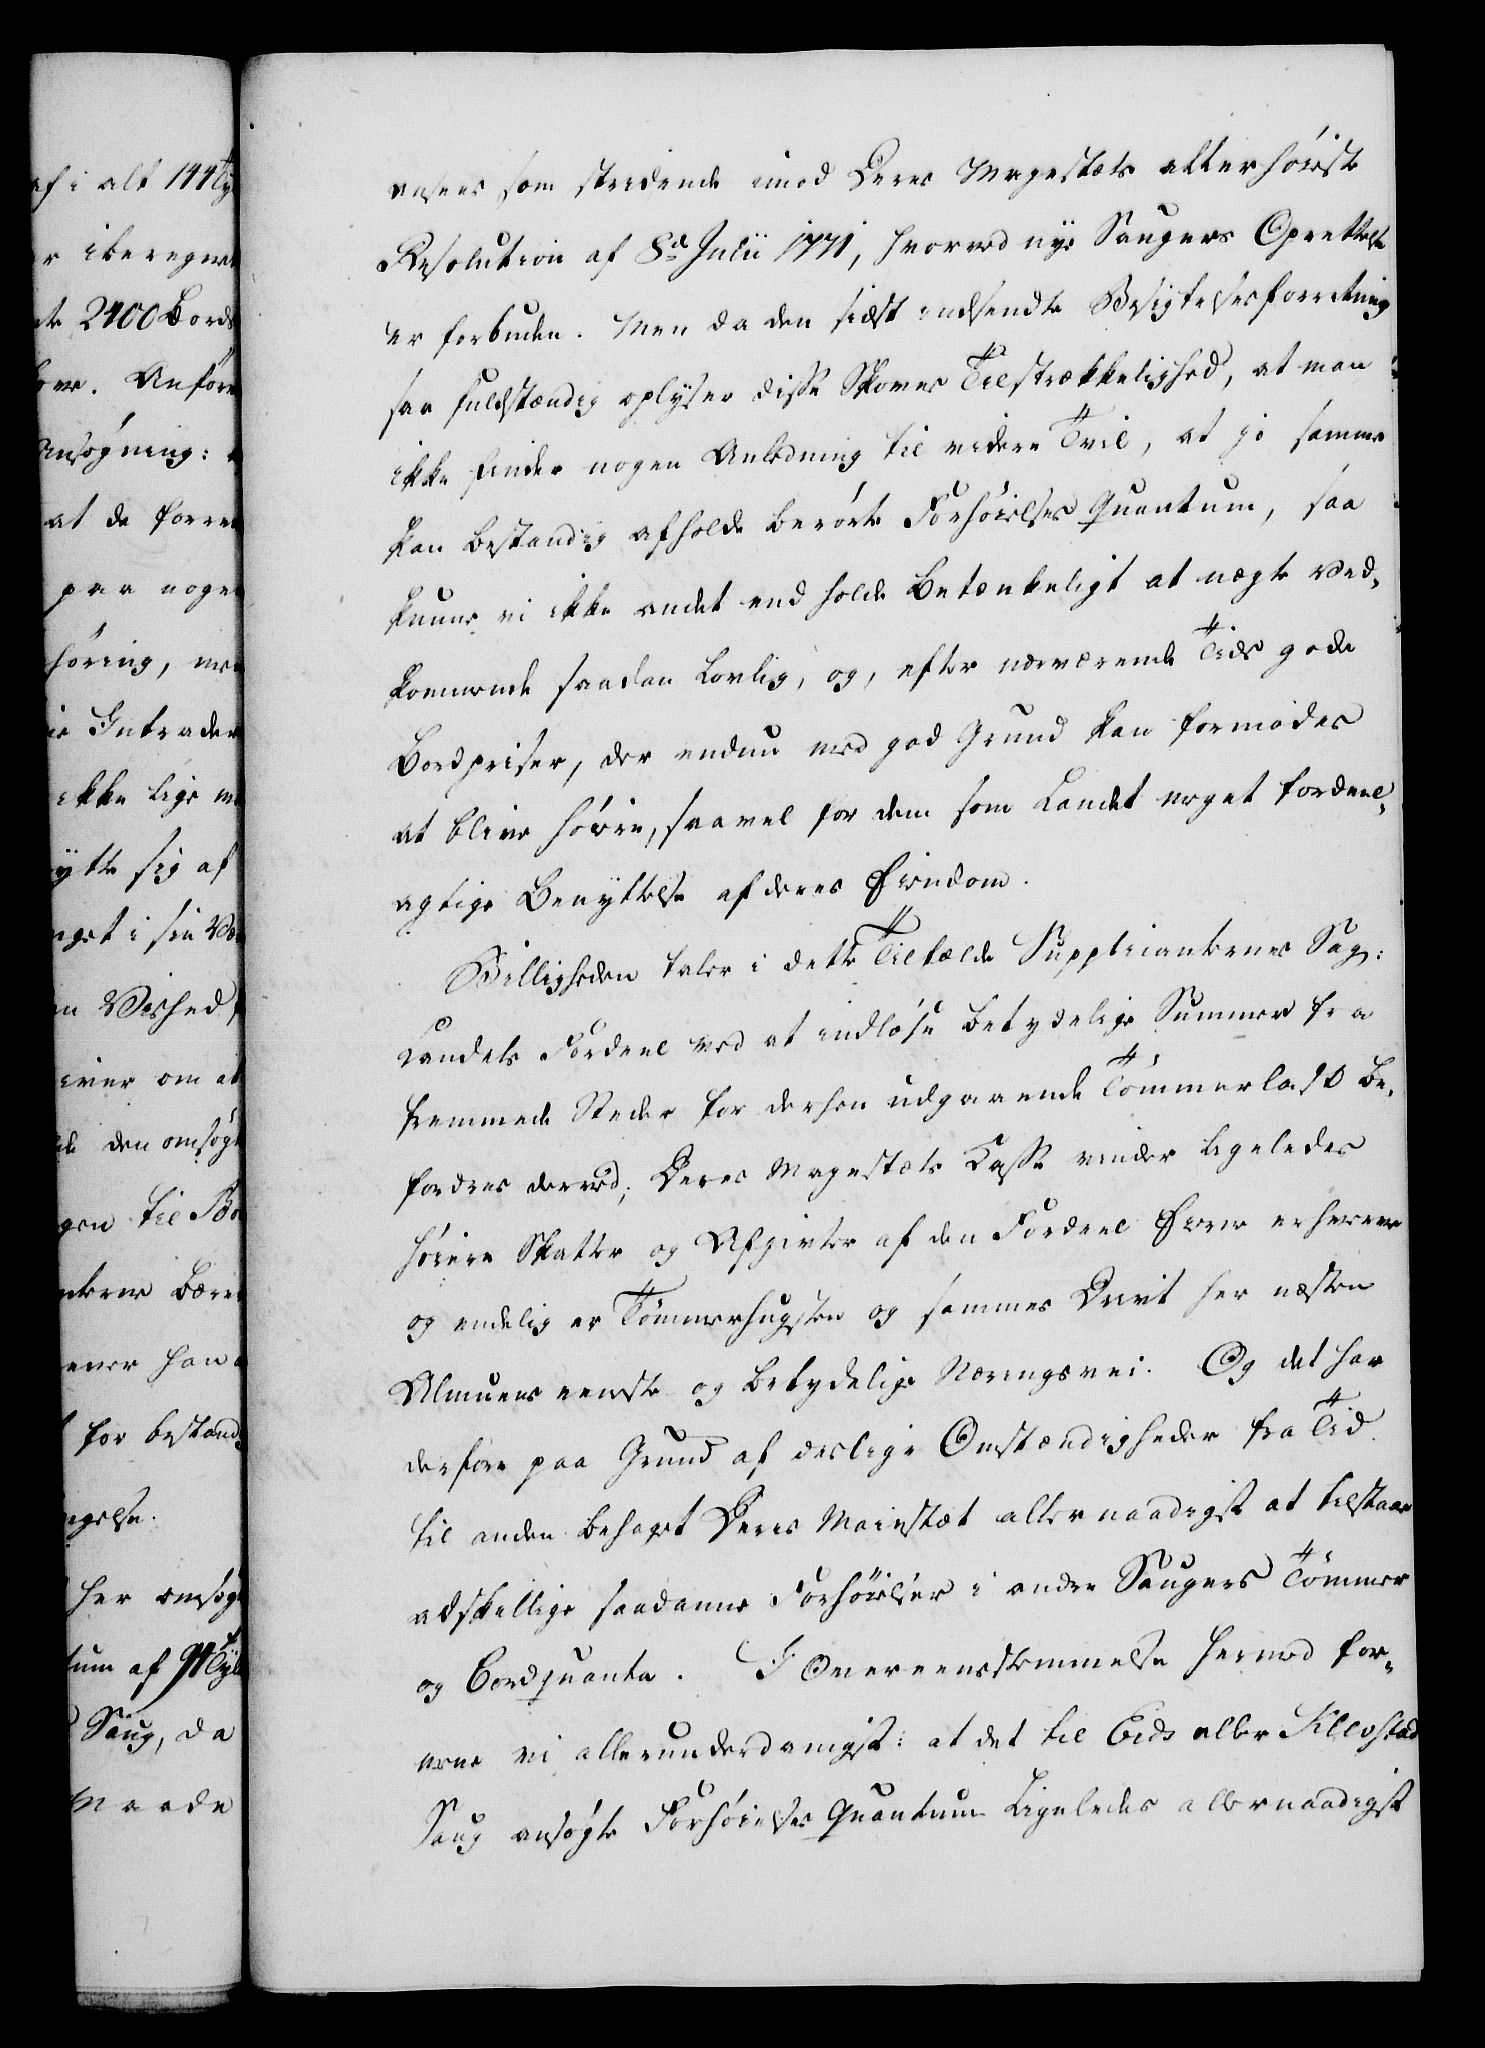 af i alt 144 Ty
er iberegnet
2400 Bord
Anfør
Ansøgning:
at de forre
paa nogen
høring, men
Intrader
ikke lige
ytte sig af
nget i sin
Vished,
iver om at
den ansøgt
gen til Bo
bærer
ener han
for bestand
ngelse.
her ansøgt
tum af 94 Tylt
Saug, da
Maade
ansees som stridende imod Deres Majestæts allerhøieste
Resolution af 8d Julii 1771, hvorved nye Saugers Oprettelse
er forbuden. Men da den sidst indsendte Besigtelsesforretning
saa fuldstændig oplyser disse Skoves Tilstrækkelighed, at man
ikke finder nogen Anledning til videre Tvil, at jo samme
kan bestandig afholde berørte Forhøielses Quantum, saa
kunne vi ikke andet end holde betænkeligt at nægte Ved-
kommende saadan lovlig, og, efter nærværende Tids gode
Bordpriser, der endnu med god Grund kan formodes
at blive høiere, saavel for dem som Landet meget fordeel-
agtige Benyttelse af deres Eiendom.
Billigheden taler i dette Tilfælde Supplicanternes Sag:
Landets Fordeel ved at indløse betydelige Summer fra
fremmede Steder for derhen udgaaende Tømmerlast be-
fordres derved; Deres Majestæts Casse vinder ligeledes
høiere Skatter og Afgivter af den Fordeel Eieren erhverver
og endelig er Tømmerhugsten og sammes Drivt her næsten
Almuens eeneste og betydelige Næringsvei. Og det har
derfore paa Grund af deslige Omstændigheder fra Tid
til anden behaget Deres Maiestæt allernaadigst at tilstaae
adskellige saadanne Forhøielser i andre Saugers Tømmer
og Bordquanta. I Overeensstemmelse hermed for-
mene vi allerunderdanigst: at det til Eids eller Killostad
Saug ansøgte Forhøielses Quantum ligeledes allernaadigst